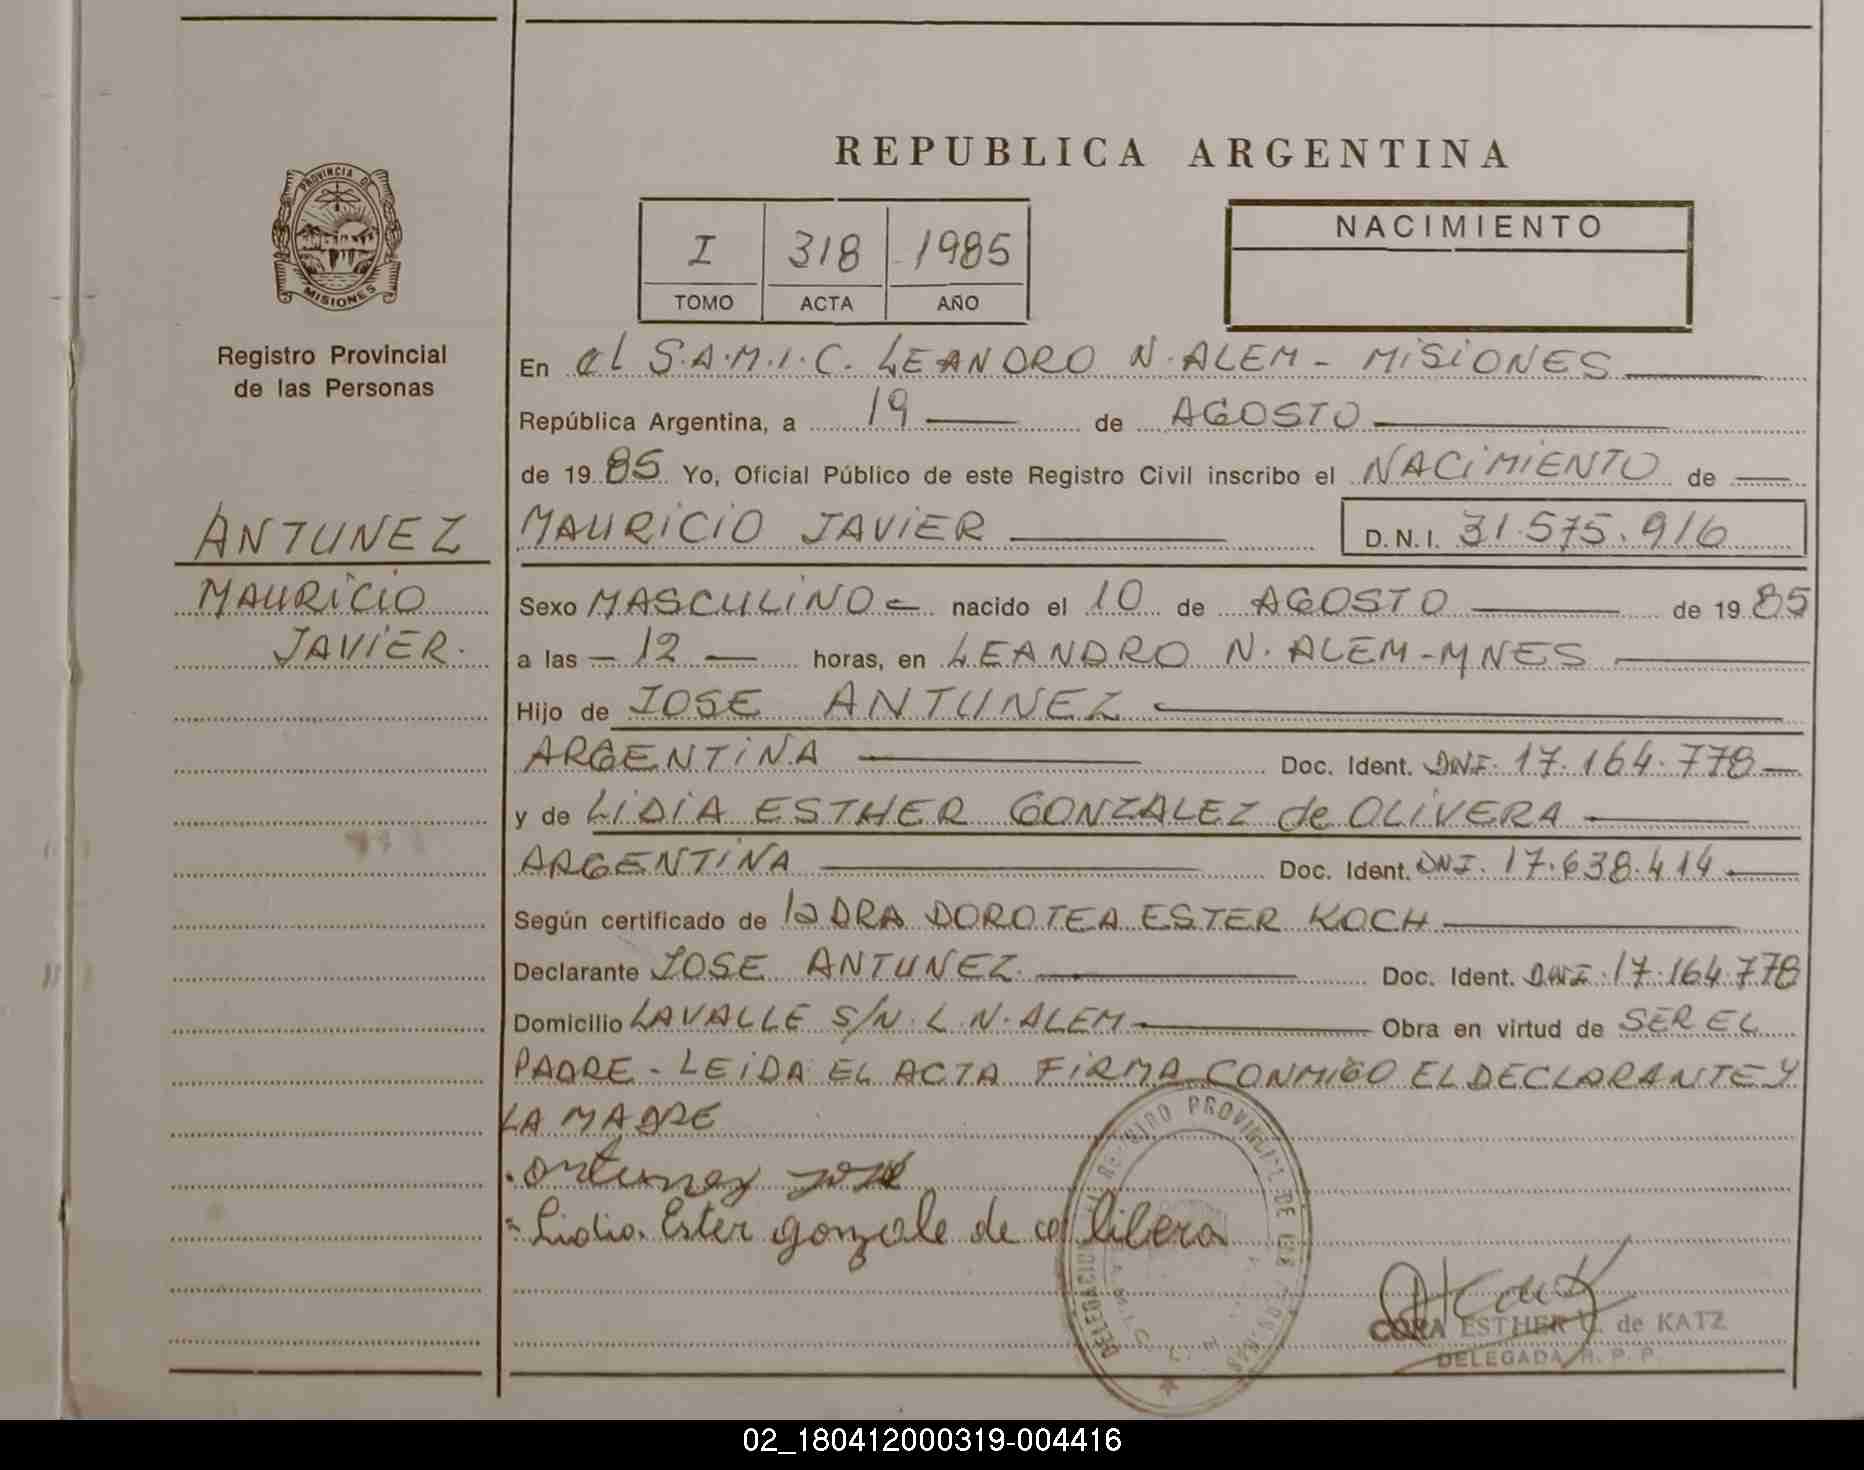 REPUBLICA ARGENTINA
PROVINCIA DE
MISIONES
Registro Provincial
de las Personas
I 318 1985
TOMO ACTA AÑO
NACIMIENTO
En el S.A.M.I.C. LEANDRO N. ALEM - MISIONES
República Argentina, a 19 de AGOSTO
de 1985 Yo, Oficial Público de este Registro Civil inscribo el NACIMIENTO de
ANTUNEZ
MAURICIO
JAVIER.
MAURICIO JAVIER D.N.I. 31.575.916
Sexo MASCULINO nacido el 10 de AGOSTO de 1985
a las - 12 - horas, en LEANDRO N. ALEM - MNES
Hijo de JOSE ANTUNEZ
ARGENTINA Doc. Ident. DNI. 17.164.778
y de LIDIA ESTHER GONZALEZ de OLIVERA
ARGENTINA Doc. Ident. DNI. 17.638.414
Según certificado de la DRA DOROTEA ESTER KOCH
Declarante JOSE ANTUNEZ Doc. Ident. DNI. 17.164.778
Domicilio LAVALLE S/N. L. N. ALEM Obra en virtud de SER EL
PADRE - LEIDA EL ACTA FIRMA CONMIGO EL DECLARANTE Y
LA MADRE
antunez jose
Lidia Ester gonzale de libera
DELEGACION REGISTRO PROVINCIAL DE LAS PERSONAS
CORA ESTHER de KATZ
DELEGADA R. P. P.
02_180412000319-004416